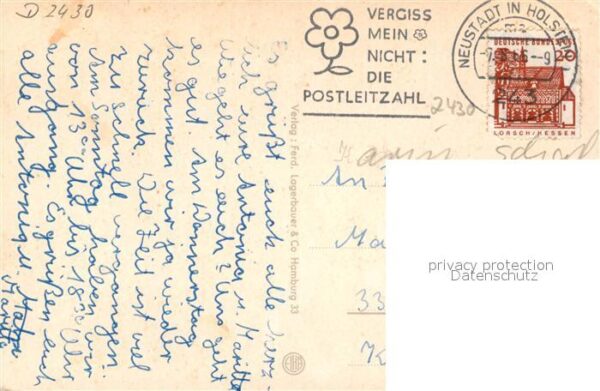 D 2430
VERGISS
MEIN
NICHT:
DIE
POSTLEITZAHL
NEUSTADT IN HOLSTEIN
243
DEUTSCHE BUNDESPOST
20
LORSCH/HESSEN
2430
Karin
Es grüßt euch alle herz-
lich eure Antonia u. Maritta
Wie geht es euch? Uns geht
es gut. Am Donnerstag
kommen wir ja wieder
zurück. Die Zeit ist viel
zu schnell vergangen.
Am Sonntag haben wir
von 13°° Uhr bis 18 30 Uhr
ausgang. Es grüßen euch
alle Antonia u.
Maritta
Verlag: Ferd. Lagerbauer & Co. Hamburg 33
An
Ma
33
K
privacy protection
Datenschutz